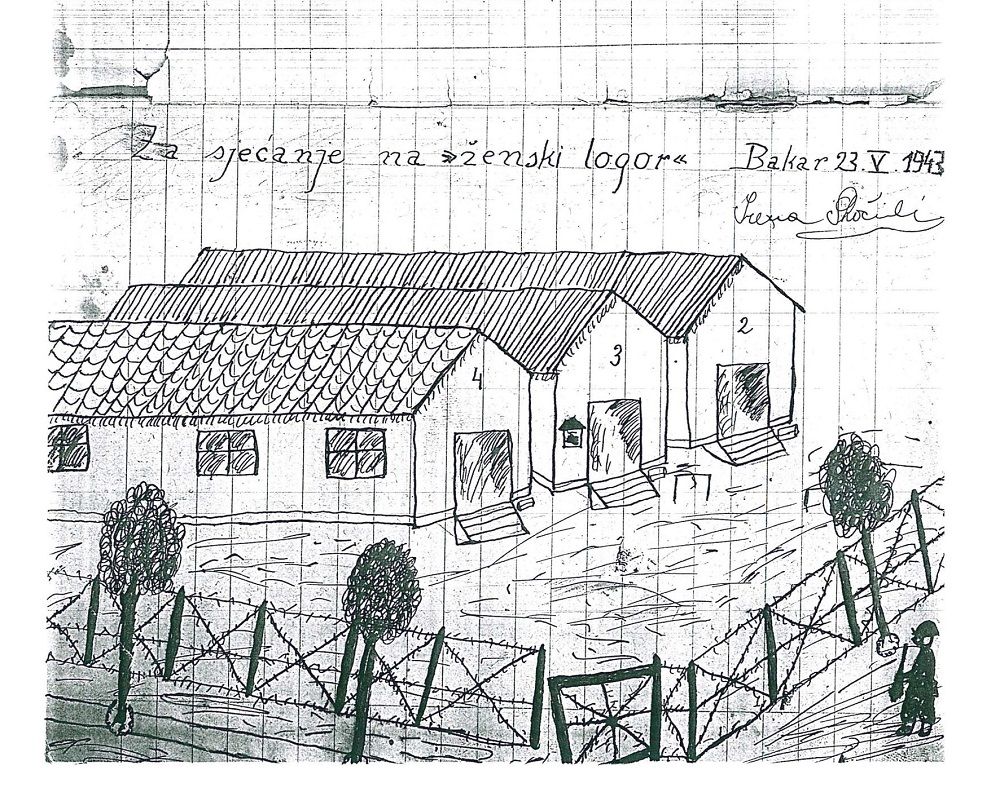 Za sjećanje na »ženski logor« Bakar 23.V.1943
Irena
2
3
4